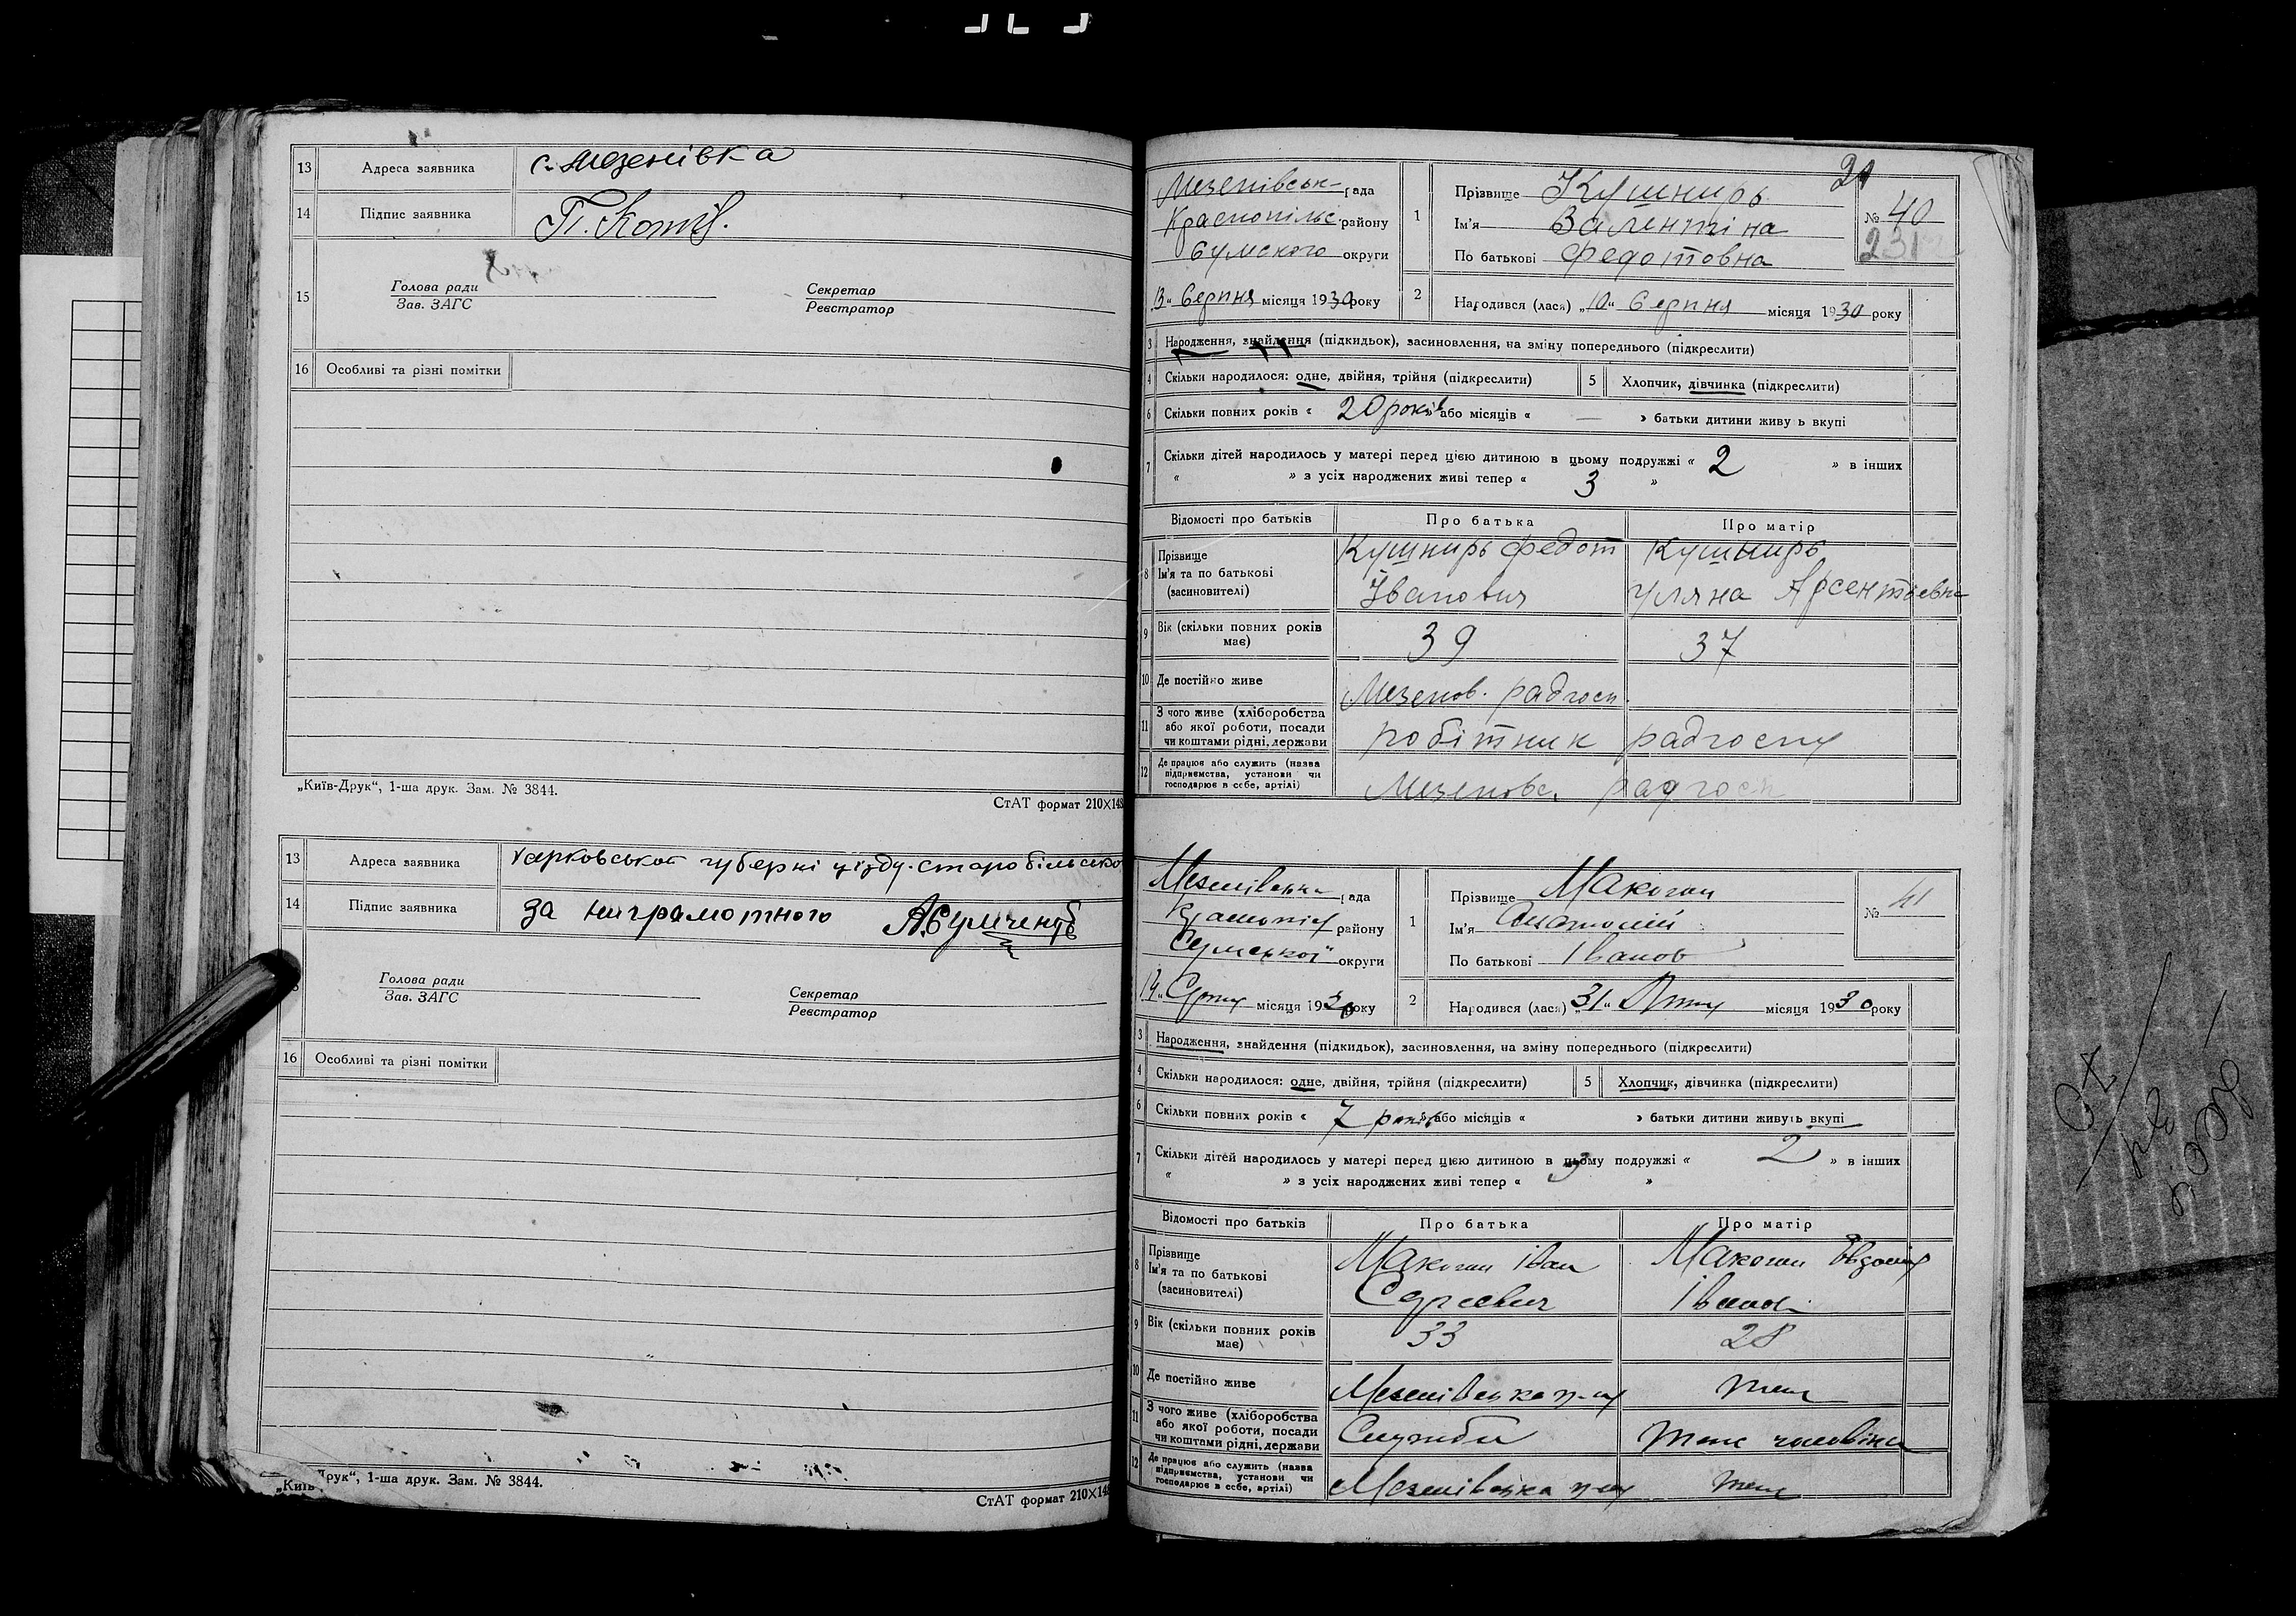 13 Адреса заявника с. Мезенівка
14 Підпис заявника П. Котів.
15 Голова ради Секретар
Зав. ЗАГС Реєстратор
16 Особливі та різні помітки
„Київ-Друк“, 1-ша друк. Зам. № 3844.
СтАТ формат 210×148
13 Адреса заявника харковської губерні уїзду-старобільсько
14 Підпис заявника за ниграмотного
Голова ради Секретар
Зав. ЗАГС Реєстратор
16 Особливі та різні помітки
„Київ-Друк“, 1-ша друк. Зам. № 3844.
СтАТ формат 210×148
21
Мезенівськ- рада
Краснопільс району
Сумского округи
„13“ Серпня місяця 1930 року
1 Прізвище Кушнирь
Ім'я Валентіна
По батькові Федотовна
№ 40
231
2 Народився (лася) „10“ Серпня місяця 1930 року
3 Народження, знайдення (підкидьок), засиновлення, на зміну попереднього (підкреслити)
4 Скільки народилося: одне, двійня, трійня (підкреслити) 5 Хлопчик, дівчинка (підкреслити)
6 Скільки повних років « 20 років » або місяців « — » батьки дитини живу ь вкупі
7 Скільки дітей народилось у матері перед цією дитиною в цьому подружжі « 2 » в інших
« » з усіх народжених живі тепер « 3 »
Відомості про батьків Про батька Про матір
8 Прізвище Кушнирь Федот Кушнирь
Ім'я та по батькові Іванович Уляна Арсентіевна
(засиновителі)
9 Вік (скільки повних років має) 39 37
10 Де постійно живе Мезенов. радгосп.
11 З чого живе (хліборобства або якої роботи, посади чи коштами рідні, держави робітник радгоспу
12 Де працює або служить (назва підприємства, установи чи господарює в себе, артілі) Мезеновс. радгосп
Мезенівська рада
району
Сумської округи
місяця 1930 року
1 Прізвище Макогон
Ім'я Анатолій
По батькові Іванов
№ 41
2 Народився (лася) „31“ Липня місяця 1930 року
3 Народження, знайдення (підкидьок), засиновлення, на зміну попереднього (підкреслити)
4 Скільки народилося: одне, двійня, трійня (підкреслити) 5 Хлопчик, дівчинка (підкреслити)
6 Скільки повних років « 7 років » або місяців « » батьки дитини живуть вкупі
7 Скільки дітей народилось у матері перед цією дитиною в цьому подружжі « 2 » в інших
« » з усіх народжених живі тепер « 3 »
Відомості про батьків Про батька Про матір
8 Прізвище Макогон Іван Макогон
Ім'я та по батькові Сергеевич Іванов.
(засиновителі)
9 Вік (скільки повних років має) 33 28
10 Де постійно живе Мезенівська
11 З чого живе (хліборобства або якої роботи, посади чи коштами рідні, держави Служби
12 Де працює або служить (назва підприємства, установи чи господарює в себе, артілі) Мезенівська